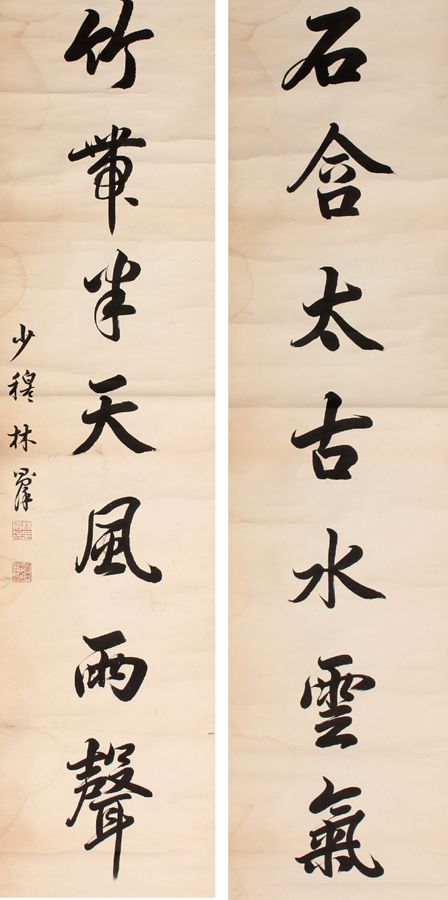 石含太古水雲氣
竹帶半天風雨聲
少穆林則徐